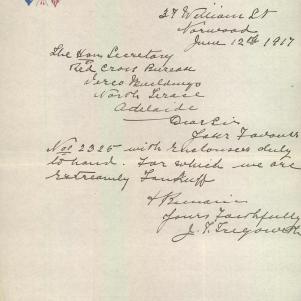 27 William St
Norwood
June 12th 1917
The Hon Secretary
Red Cross Bureau
Verco Buildings
North Terace
Adelaide
Dear Sir
Your Favour
No 2325 with Enclousers duly
to hand. For which we are
Extreamly Tankfull
I Remain
Yours Faithfully